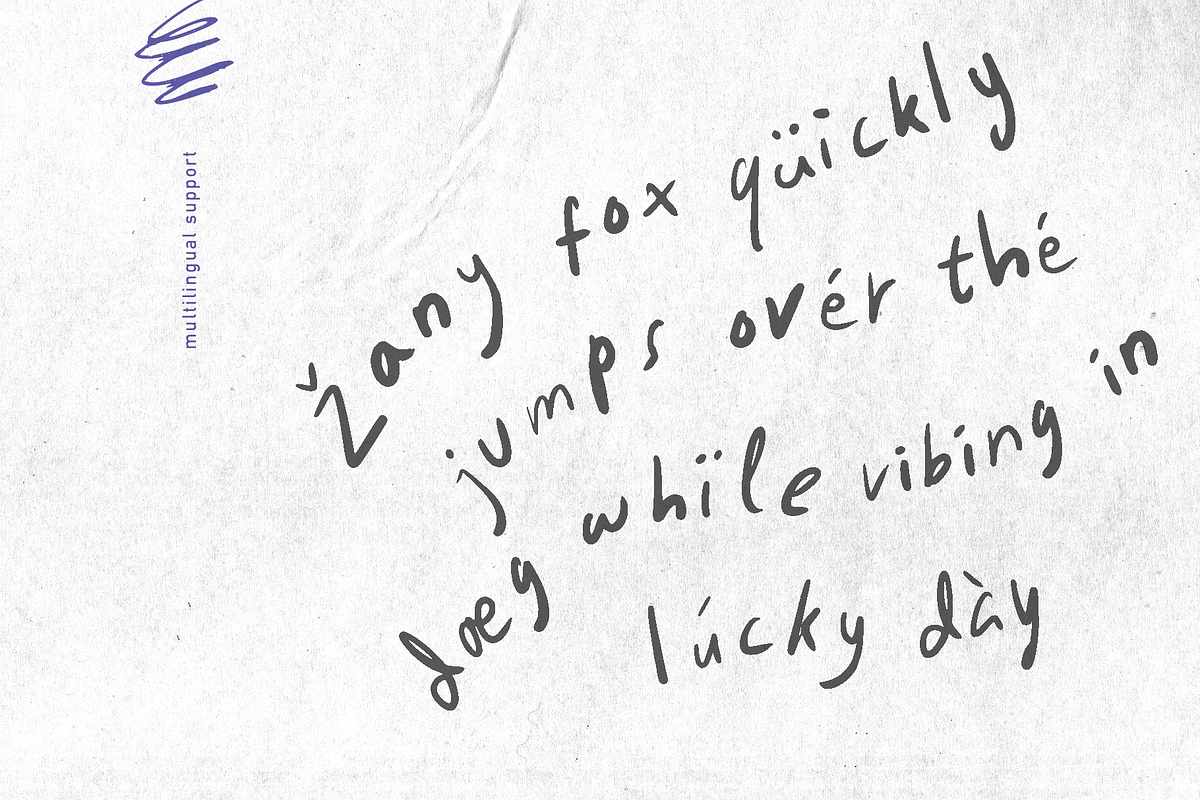 multilingual support
Žany fox qüickly
jumps ovér thé
dœg whïle vibing in
lúcky dày